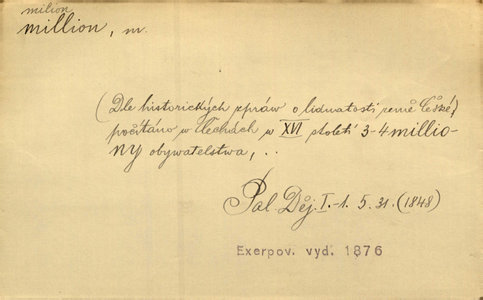 milion
million, m.
(Dle historických zpráw o lidnatosti země České)
počítáno w Čechách w XVI století 3-4 millio-
ny obywatelstwa, ..
Pal. Děj. I.-1. 5. 31. (1848)
Exerpov. vyd. 1876